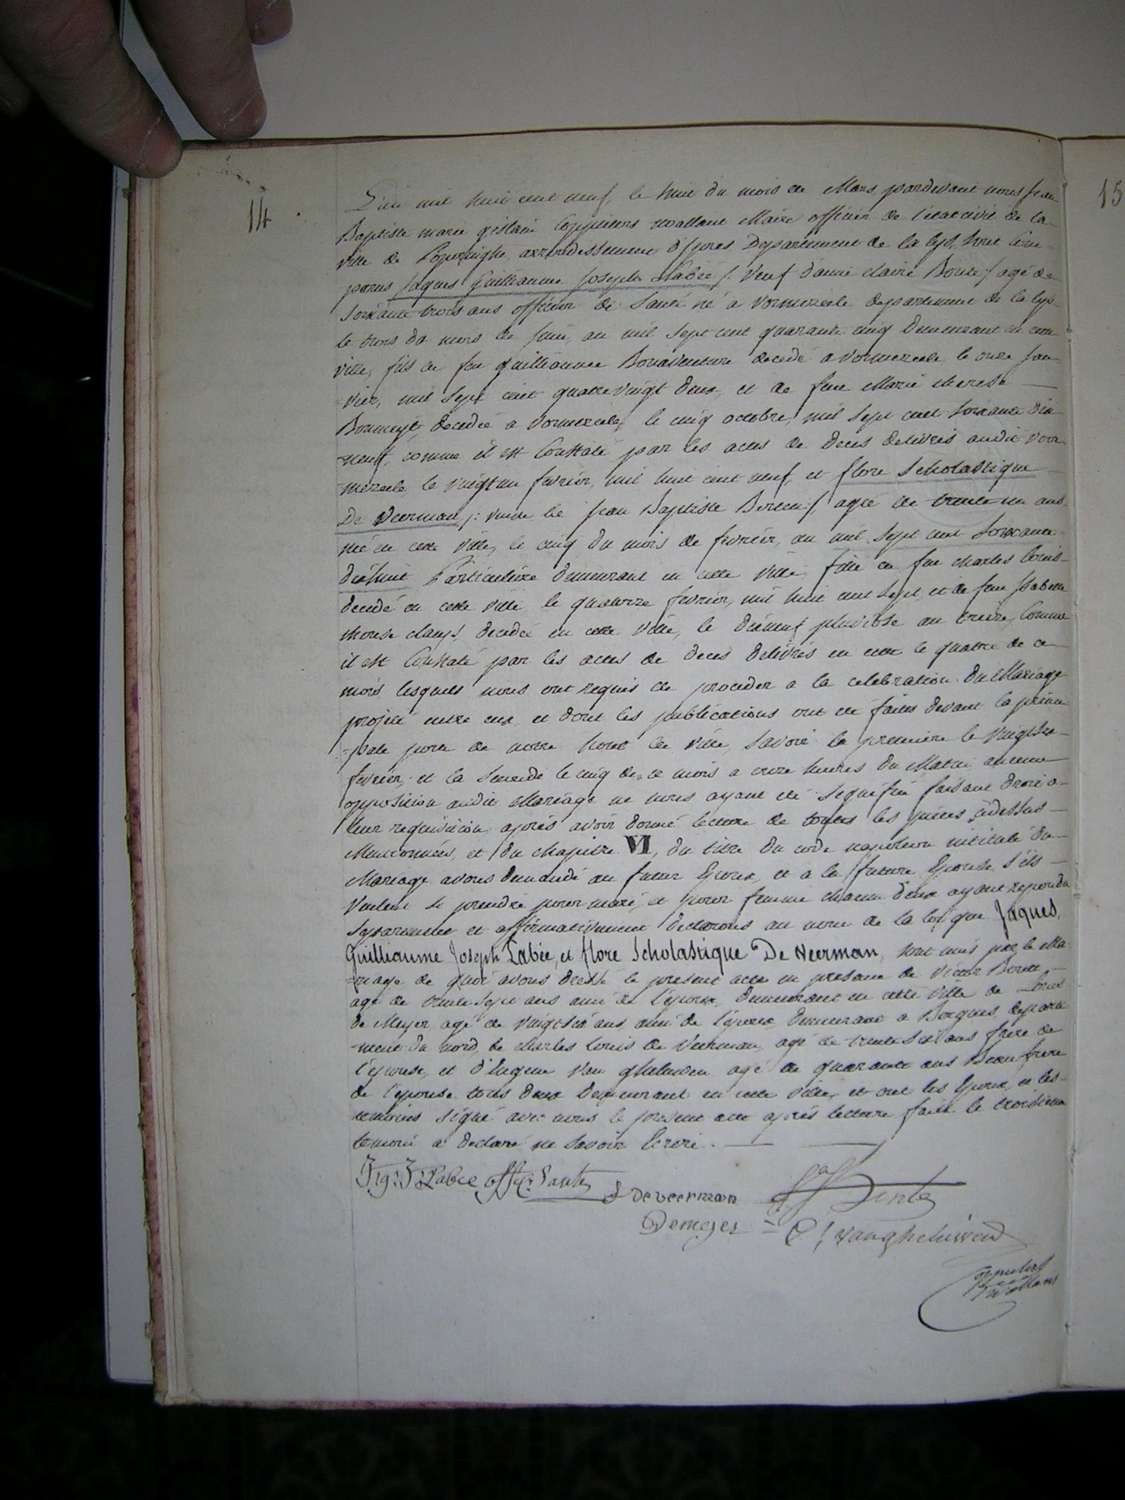 14
15
L'an mil huit cent neuf, le huit du mois de Mars, pardevant nous Jean
Baptiste marie gislain Coppieters wallant Maire officier de l'état civil de la
ville de Poperinghe, arrondissement d'Ypres Département de la Lys, sont com-
parus Jaques Guilliaume Joseph Labée /: Veuf d'anne claire Boute :/ agé de
soixante trois ans officier de Santé né a Vormezeele departement de la Lys
le trois du mois de Juin, an mil sept cent quarante cinq demeurant en cette
ville, fils de feu guilliaume Bonaventure decedé a Vormezeele le onze Jan-
vier, mil sept cent quatre vingt deux, et de feue Marie therese
decedée a Vormezeele, le cinq octobre, mil sept cent soixante dix
neuf, comme il est Constaté par les actes de deces delivrés audit Vor-
mezeele le Vingt un fevrier, mil huit cent neuf et flore Scholastique
De Veerman /: veuve de Jean Baptiste :/ agée de trente un ans,
née en cette ville, le cinq du mois de fevrier, an mil sept cent Soixante
dixhuit Particulière demeurant en cette ville, fille de feu charles louis
decedé en cette ville le quatorze fevrier, mil huit cent sept, et de feue Isabelle
therese clays, decedée en cette ville, le dixneuf pluviôse an treize, Comme
il est Constaté par les actes de deces delivrés en cette le quatre de ce
mois, lesquels nous ont requis de proceder a la celebration du Mariage
projetté entre eux, et dont les publications ont été faites devant la princi-
-pale porte de notre hotel de ville, Savoir la premiere le Vingt six
fevrier, et la Seconde le cinq de ce mois a onze heures du Matin aucune
opposition audit Mariage ne nous ayant été signifiée faisant droit a
leur requisition, après avoir donné lecture de toutes les pièces cidessus
Mentionnées, et du chapitre VI, du titre du code napoleon intitulé du
Mariage avons demandé au futur Epoux, et a la future Epouse, s'ils
Veulent se prendre pour mari, et pour femme chacun d'eux ayant repondu
Separement et affirmativement declarons au nom de la loi que Jaques
Guilliaume Joseph Labée, et flore Scholastique De Veerman, sont unis par le Ma-
riage de quoi avons dressé le present acte en presence de Victor
agé de trente sept ans ami de l'epoux, demeurant en cette Ville de Louis
de Meyer, agé de Vingt six ans ami de l'epoux demeurant a Bergues, departe-
ment du nord, de charles Louis de Veerman, agé de trente six ans frere de
l'epouse, et d'Eugene Van ghelueven agé de quarante ans Beau frere
de l'epouse tous deux demeurant en cette ville, et ont les Epoux, et les
temoins signé avec nous le present acte après lecture faite le troisième
temoin a declaré ne savoir Ecrire.
J:g:J Labée offic: Santé
F deveerman
Demeyer